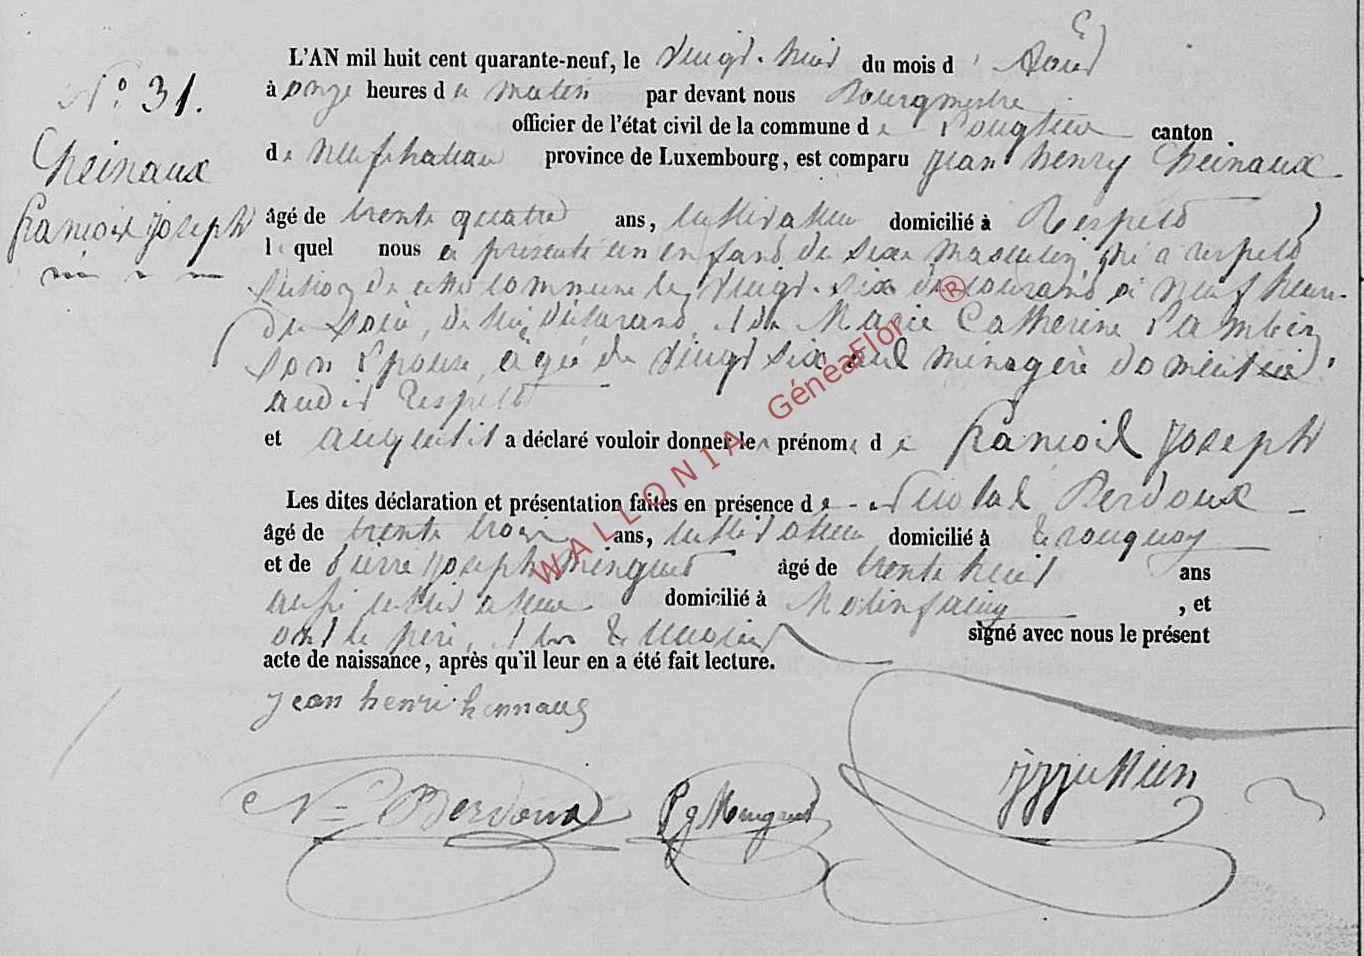 N.º 31.
Cheinaux
françois joseph
L'AN mil huit cent quarante-neuf, le vingt-huit du mois d'Août
à onze heures du matin par devant nous Bourgmestre
officier de l'état civil de la commune de Longlier canton
de neufchateau province de Luxembourg, est comparu jean henry Cheinaux
âgé de trente quatre ans, cultivateur domicilié à Respelt
lequel nous a présenté un enfant du sexe masculin, né a respelt
section de cette commune le vingt-six du courant à neuf heures
du soir, de lui déclarant, et de Marie Catherine Lambin
son épouse, agée de vingt six ans ménagère domiciliée
audit Respelt
et auquel il a déclaré vouloir donner les prénoms de françois joseph
Les dites déclaration et présentation faites en présence de Nicolas Perdoux
âgé de trente trois ans, cultivateur domicilié à tronquoy
et de pierre joseph Mingust âgé de trente huit ans
aussi cultivateur domicilié à Molinfaing , et
ont le père, et les témoins signé avec nous le présent
acte de naissance, après qu'il leur en a été fait lecture.
jean henri
N= Berdoux
P j
WALLONIA GénéaFlor ®